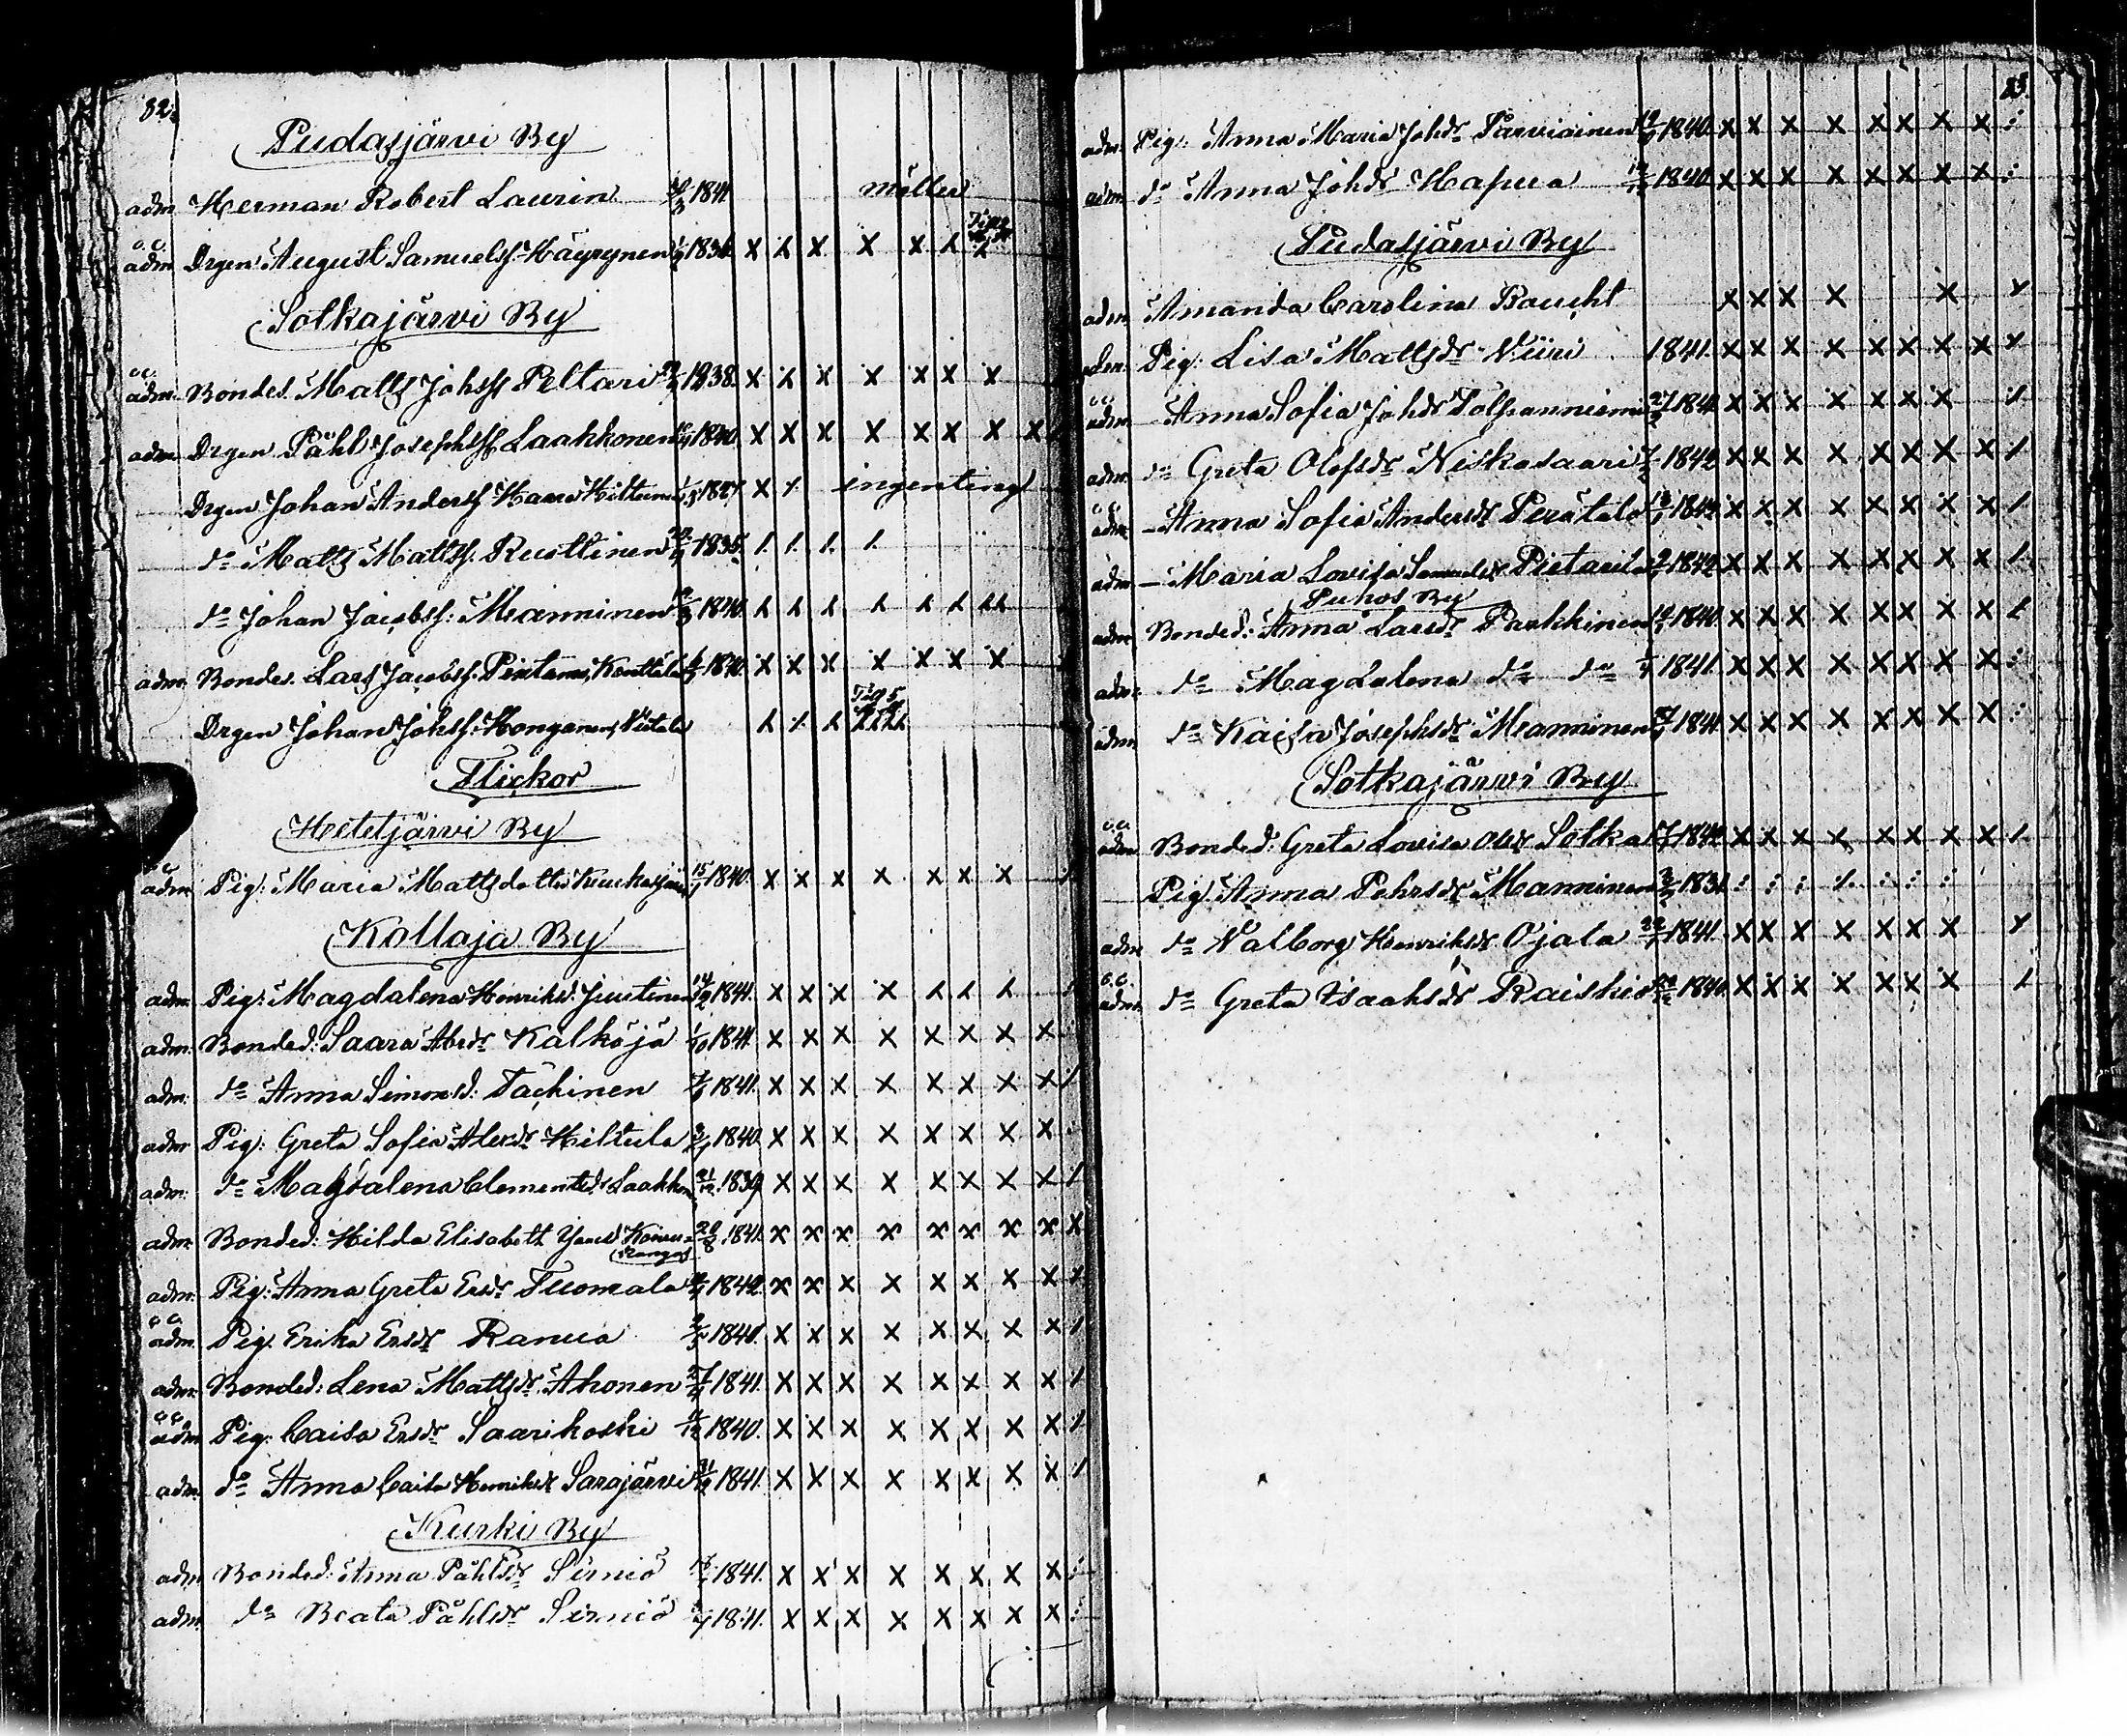 82.
Pudasjärvi By
adm Herman Robert Laurin 1841 måller
c.c. adm Drgen August Samuelss. Häyrynen 1836 x x x x x
Sotkajärvi By
c.c. adm. Bondes. Matts Johss Peltari 1838. x x x x x x x
adm. Drgen Påhl Josephss Laakkonen 1840. x x x x x x x x
Drgen Johan Anderss Hiltunen 1827. x ingenting
do Matts Mattss. Rusttinen 1835.
do Johan Jacobss. Manninen 1840.
adm. Bondes. Lars Jacobss. Kenttälä 1840. x x x x x x x
Drgen Johan Johss. Honganen
Flickor
Hetejärvi By
c.c. adm. Pig: Maria Mattsdotter 15/1 1840. x x x x x x x
Kollaja By
adm. Pig: Magdalena Henriksd. Juutinen 1841. x x x x
adm. Bonded: Saara Abrdr Kälköjä 1/10 1841. x x x x x x x x
adm. do Anna Simonsd: Täckinen 1841. x x x x x x x x
adm Pig: Greta Sofia Hiltula 1840. x x x x x x x x
adm. do Magdalena Clementsdr Laakkon 21/12 1839 x x x x x x x x
adm. Bonded: Hilda Elisabeth Koivu= 20/8 1841. x x x x x x x x x
kangas
adm. Pig: Anna Greta Ersdr Tuomala 1842. x x x x x x x x x
c.c. adm. Pig. Erika Ersdr Ranua 1840. x x x x x x x x
adm. Bonded: Lena Mattsdr Ahonen 1841. x x x x x x x x
c.c. adm Pig. Caisa Ersdr Saarikoski 1840. x x x x x x x x
adm. do Anna Caisa Henriksdr Sarajärvi 1841. x x x x x x x x
Kurki By
adm Bonded: Anna Påhlsdr Sirniö 1841. x x x x x x x x
adm. do Beata Påhlsdr Sirniö 1841. x x x x x x x x
83.
adm. Pig: Anna Maria Johdr Parviainen 1840. x x x x x x x x
adm. do Anna Johdr Hapua 1840. x x x x x x x x
Pudasjärvi By
adm. Amanda Carolina Baucht x x x x x
adm. Pig. Lisa Mattsdr Niiri 1841. x x x x x x x x
c.c. adm. Anna Sofia Johdr Tolpanniemi 1841 x x x x x x x
adm. do Greta Olofsdr Niskasaari 1842 x x x x x x x x
c.c. adm. Anna Sofia Andersdr Perätalo 1842. x x x x x x x x
adm. Maria Lovisa Samuelsdr Pietarila 1842 x x x x x x x x
Puhos By
adm. Bonded: Anna Larsdr Parkkinen 1840. x x x x x x x x
adm. do Magdalena do do 1841. x x x x x x x x
adm. do Kaisa Josephsdr Manninen 1841. x x x x x x x x
Sotkajärvi By
c.c. adm Bonded: Greta Lovisa Olsdr Sotka 1842 x x x x x x x x
Pig. Anna Pehrsdr Manninen 1831
adm. do Valborg Henriksdr Ojala 22/7 1841. x x x x x x x
c.c. adm. do Greta Isaaksdr Raiskio 1840. x x x x x x x